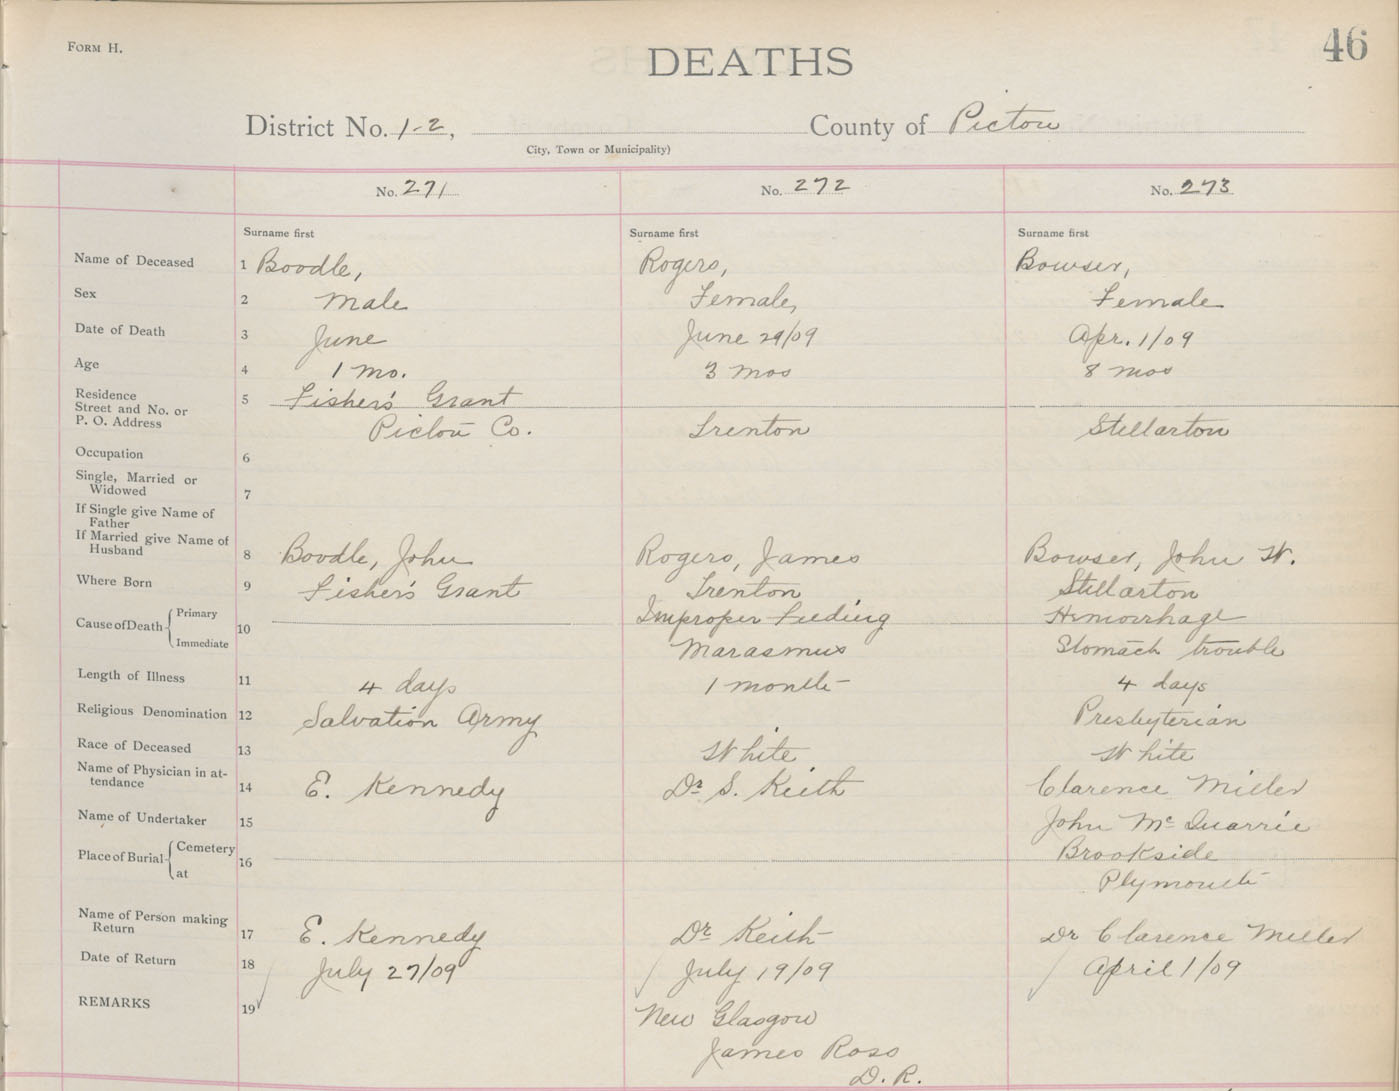 FORM H.
46
DEATHS
District No. 1-2, County of Pictou
City, Town or Municipality)
No. 271 No. 272 No. 273
Surname first Surname first Surname first
Name of Deceased 1 Boodle, Rogers, Bowser,
Sex 2 Male Female, Female
Date of Death 3 June June 29/09 Apr. 1/09
Age 4 1 mo. 3 mos 8 mos
Residence 5 Fisher's Grant
Street and No. or
P. O. Address Pictou Co. Trenton Stellarton
Occupation 6
Single, Married or
Widowed 7
If Single give Name of
Father
If Married give Name of
Husband 8 Boodle, John Rogers, James Bowser, John W.
Where Born 9 Fisher's Grant Trenton Stellarton
Cause of Death 10 Primary Improper Feeding Hemorrhage
Immediate Marasmus Stomach trouble
Length of Illness 11 4 days 1 month 4 days
Religious Denomination 12 Salvation Army Presbyterian
Race of Deceased 13 White White
Name of Physician in at-
tendance 14 E. Kennedy Dr S. Keith Clarence Miller
Name of Undertaker 15 John Mc Quarrie
Place of Burial 16 Cemetery Brookside
at Plymouth
Name of Person making
Return 17 E. Kennedy Dr Keith Dr Clarence Miller
Date of Return 18 July 27/09 July 19/09 April 1/09
REMARKS 19 New Glasgow
James Ross
D. R.